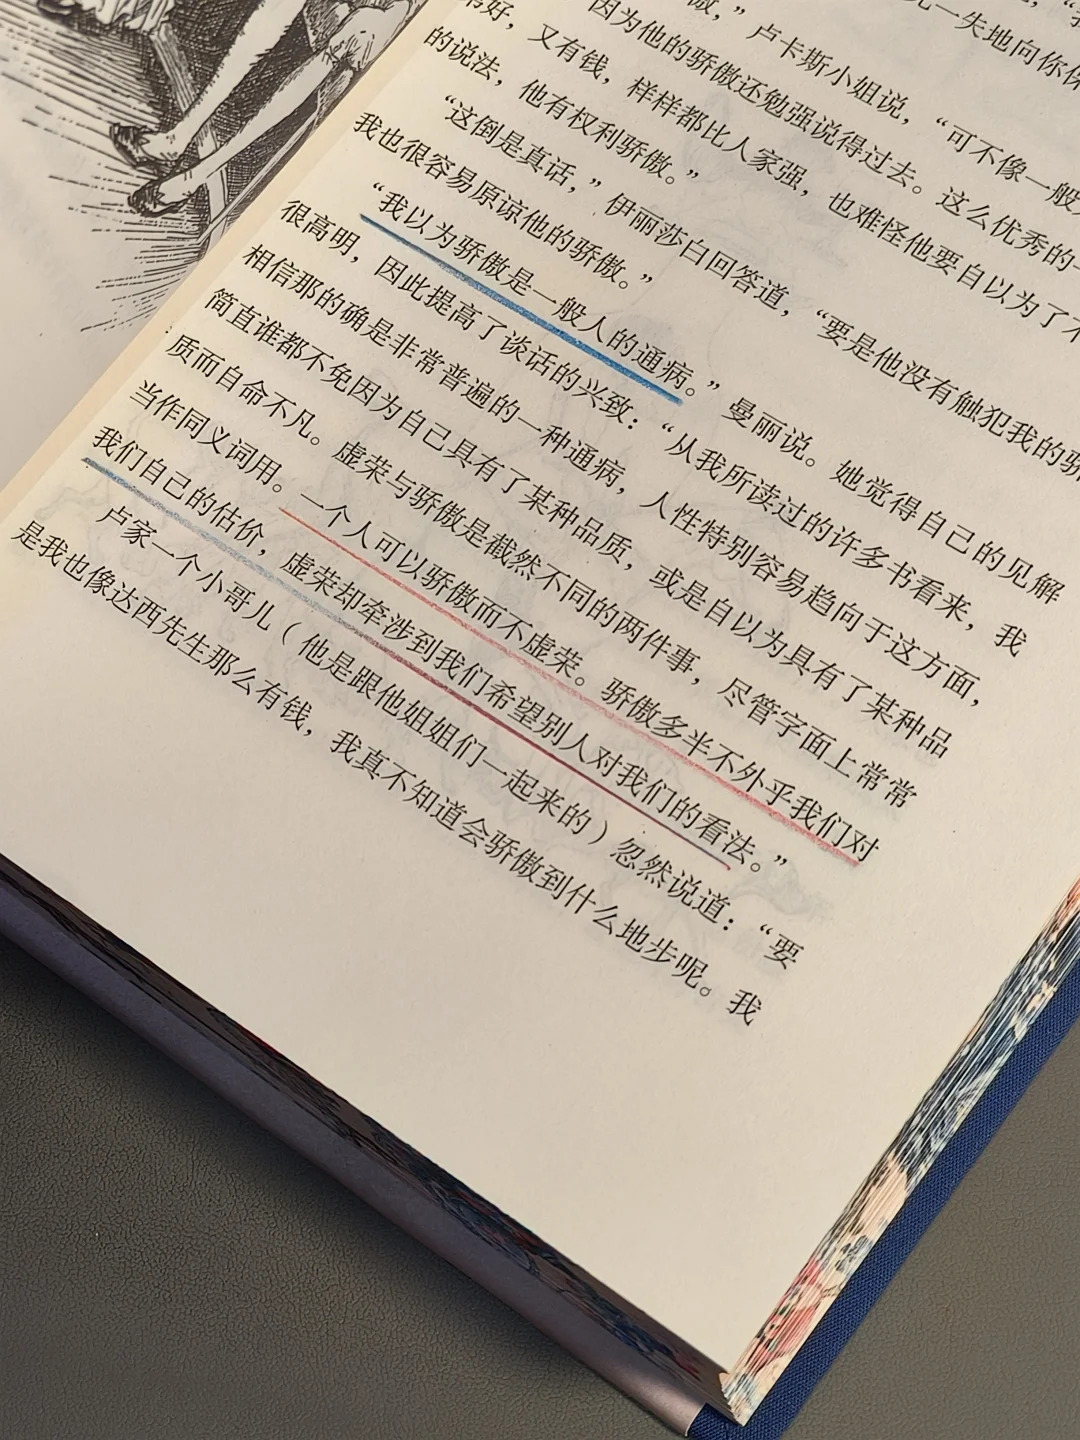 傲，”卢卡斯小姐说，“可不像一般
因为他的骄傲还勉强说得过去。这么优秀的一
好，又有钱，样样都比人家强，也难怪他要自以为了不
的说法，他有权利骄傲。”
“这倒是真话，”伊丽莎白回答道，“要是他没有触犯我的骄
我也很容易原谅他的骄傲。”
“我以为骄傲是一般人的通病。”曼丽说。她觉得自己的见解
很高明，因此提高了谈话的兴致：“从我所读过的许多书看来，我
相信那的确是非常普遍的一种通病，人性特别容易趋向于这方面，
简直谁都不免因为自己具有了某种品质，或是自以为具有了某种品
质而自命不凡。虚荣与骄傲是截然不同的两件事，尽管字面上常常
当作同义词用。一个人可以骄傲而不虚荣。骄傲多半不外乎我们对
我们自己的估价，虚荣却牵涉到我们希望别人对我们的看法。”
卢家一个小哥儿（他是跟他姐姐们一起来的）忽然说道：“要
是我也像达西先生那么有钱，我真不知道会骄傲到什么地步呢。我